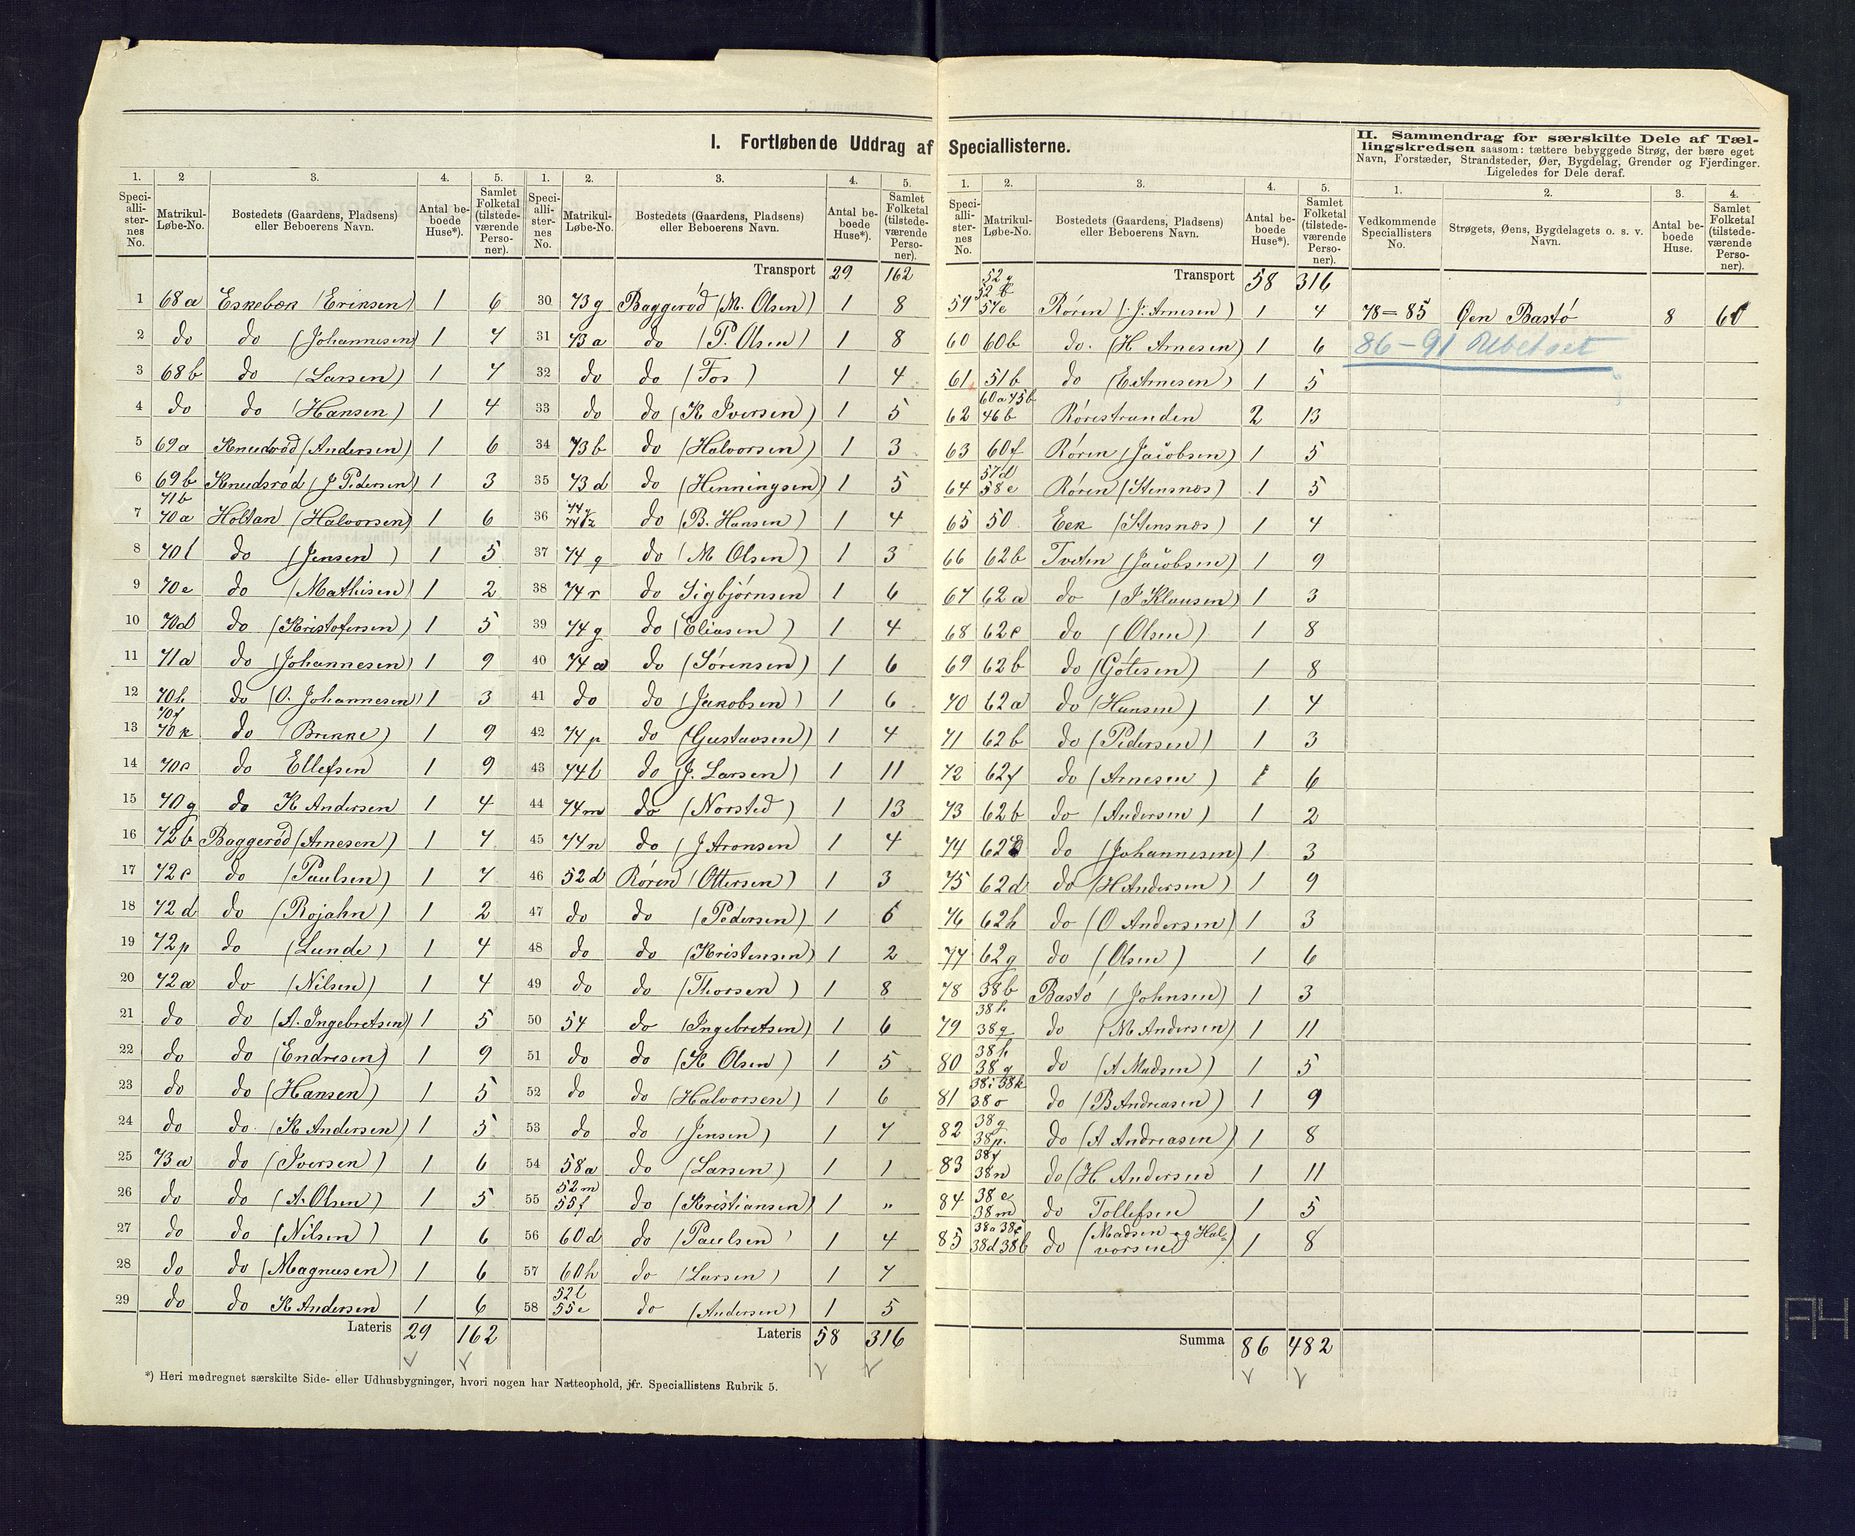 I. Fortløbende Uddrag af Speciallisterne.
1. 2 3. 4. 5.
Speciallisternes No. Matrikul-Løbe-No. Bostedets (Gaardens, Pladsens) eller Beboerens Navn. Antal beboede Huse*). Samlet Folketal (tilstedeværende Personer).
1 68a Eskebæk (Eriksen) 1 6
2 do do (Johannesen) 1 7
3 68b do (Larsen) 1 7
4 do do (Hansen) 1 4
5 69a Knudsrød (Andersen) 1 6
6 69b Knudsrød (J Pedersen) 1 3
7 71b 70a Holtan (Halvorsen) 1 6
8 70l do (Jensen) 1 5
9 70e do (Mathisen) 1 2
10 70d do (Kristofersen) 1 5
11 71a do (Johannesen) 1 9
12 70h do (O. Johannesen) 1 3
13 70f 70k do (Brekke) 1 9
14 70c do Ellefsen 1 9
15 70g do K Andersen 1 4
16 72b Baggerød (Arnesen) 1 7
17 72c do (Paulsen) 1 7
18 72d do (Rojahn) 1 2
19 72p do (Lunde) 1 4
20 72a do (Nilsen) 1 4
21 do do (A. Ingebretsen) 1 5
22 do do (Endresen) 1 9
23 do do (Hansen) 1 5
24 do do. (K Andersen) 1 5
25 73a do (Iversen) 1 6
26 do do (A. Olsen) 1 5
27 do do (Nilsen) 1 6
28 do do (Magnusen) 1 6
29 do do K Andersen 1 6
Lateris 29 162
*) Heri medregnet særskilte Side- eller Udhusbygninger, hvori nogen har Natteophold, jfr. Speciallistens Rubrik 5.
1. 2. 3. 4. 5.
Speciallisternes No. Matrikul-Løbe-No. Bostedets (Gaardens, Pladsens) eller Beboerens Navn. Antal beboede Huse*). Samlet Folketal (tilstedeværende Personer).
Transport 29 162
30 73g Baggerød (M. Olsen) 1 8
31 73a do (P. Olsen) 1 8
32 do do (Fos) 1 4
33 do do (K Iversen) 1 5
34 73b do (Halvorsen) 1 3
35 73d do (Henningsen) 1 5
36 do (B. Hansen) 1 4
37 74g do (M Olsen) 1 3
38 74r do Sigbjørnsen 1 6
39 74g do (Eliasen) 1 4
40 74a do (Sørensen) 1 6
41 do do (Jakobsen) 1 6
42 74p do (Gustavsen) 1 4
43 74l do (J. Larsen) 1 11
44 74m do (Norsted) 1 13
45 74n do (J Aronsen 1 4
46 52d Røren (Ottersen) 1 3
47 do do (Pedersen) 1 6
48 do do (Kristensen) 1 2
49 do do (Thorsen) 1 8
50 54 do (Ingebretsen) 1 6
51 do do (K Olsen) 1 5
52 do do (Halvorsen) 1 6
53 do do (Jensen) 1 7
54 58a do (Larsen) 1 1
55 52m 55f do (Kristiansen) 1 „
56 60d do (Paulsen) 1 4
57 60h do (Larsen) 1 7
58 52l 55e do (Andersen) 1 5
Lateris 58 316
1. 2. 3. 4. 5.
Speciallisternes No. Matrikul-Løbe-No. Bostedets (Gaardens, Pladsens) eller Beboerens Navn. Antal beboede Huse*). Samlet Folketal (tilstedeværende Personer).
Transport 58 316
59 57e Røren (J. Arnesen) 1 4
60 60b do. (H Arnesen) 1 6
61 51b do (E Arnesen) 1 5
62 60a 45b 46b Rørestranden 2 13
63 60f Røren (Jacobsen) 1 5
64 57d 58e Røren (Stensnæs) 1 5
65 50 Eek (Stensnæs) 1 4
66 62b Tveten (Jacobsen) 1 9
67 62a do (J Klausen) 1 3
68 62c do (Olsen) 1 8
69 62b do (Götesen) 1 8
70 62a do (Hansen) 1 4
71 62b do (Pedersen) 1 3
72 62f do (Arnesen) 1 6
73 62b do (Andersen) 1 2
74 62 do (Johannesen) 1 3
75 62d do (H Andersen) 1 9
76 62h do (O Andersen) 1 3
77 62g do (Olsen) 1 6
78 38b Bastö (Johnsen) 1 3
79 38h 38g do (M Andersen) 1 11
80 38h 38g do (A Madsen) 1 5
81 38i 38k 38o do (B Andreasen) 1 9
82 38g 38p. do (A Andreasen) 1 8
83 38f 38n do (H Andersen 1 11
84 38e 38m do Tollefsen 1 5
85 38a 38c 38d 38b do (Madsen og Halvorsen) 1 8
Summa 86 482
II. Sammendrag for særskilte Dele af Tællingskredsen saasom: tættere bebyggede Strøg, der bære eget Navn, Forstæder, Strandsteder, Øer, Bygdelag, Grender og Fjerdinger. Ligeledes for Dele deraf.
1. 2. 3. 4.
Vedkommende Speciallisters No. Strøgets, Øens, Bygdelagets o. s. v. Navn. Antal beboede Huse. Samlet Folketal (tilstedeværende Personer).
78–85 Øen Bastø 8 60
86–91 Ubetset